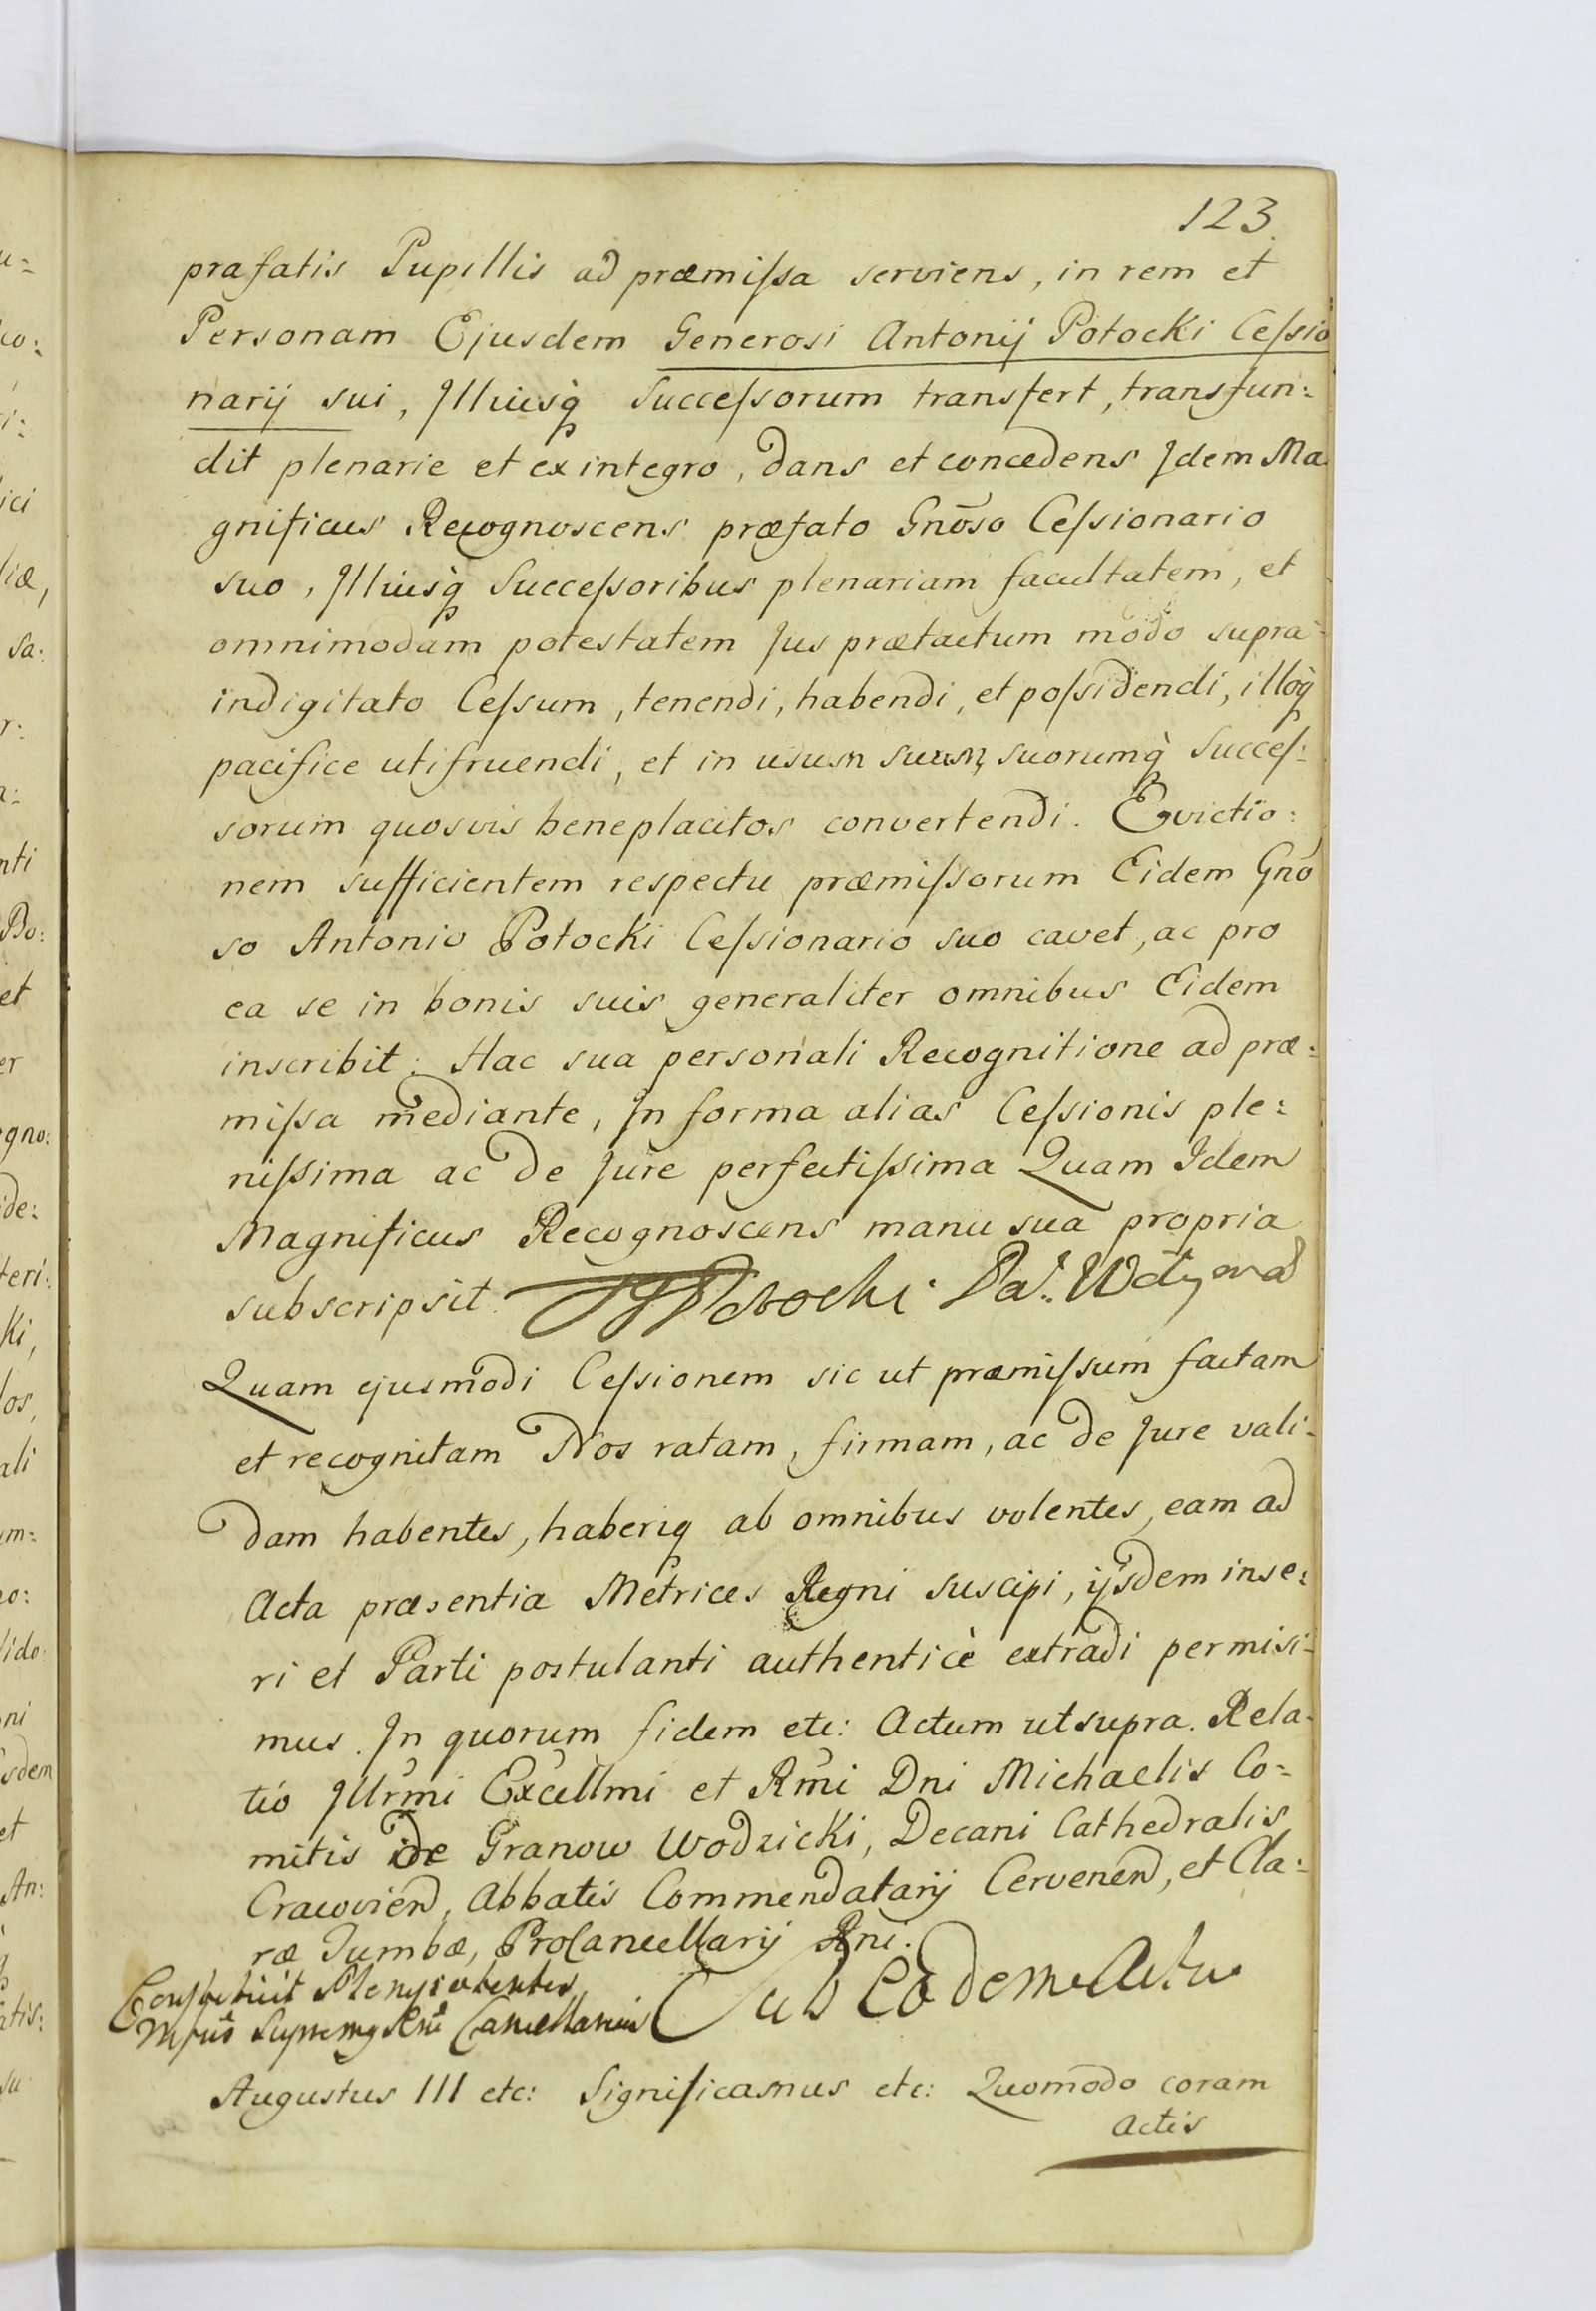 123.
prafatis Pupillis ad præmissa serviens, in rem et
Personam Ejusdem Generosi Antonij Potocki Cessio
narij sui, Illiusq̀ Successorum transfert, transfun:
dit plenarie et ex integro, dans et concedens Idem Ma
gnificus Recognoscens præfato Gnõso Cessionario
suo, Illiusq̀ Successoribus plenariam facultatem, et
omnimodam potestatem Jus prætactum modo supra
indigitato Cessum, tenendi, habendi, et possidendi, illoq̀
pacifice utifruendi, et in usum suum, suorumq̀ Succes:
sorum quosvis beneplacitos convertendi. Evictio:
nem sufficientem respectu præmissorum Eidem Gnõ
so Antonio Potocki Cessionario suo cavet, ac pro
ea se in bonis suis generaliter omnibus Eidem
inscribit. Hac sua personali Recognitione ad præ:
missa mediante, In forma alias Cessionis ple:
nissima ac de Jure perfectissima Quam Idem
Magnificus Recognoscens manu sua propria
subscripsit. Potocki
Quam ejusmodi Cessionem sic ut præmissum factam
et recognitam Nos ratam, firmam, ac de Jure vali:
dam habentes, haberiq ab omnibus volentes, eam ad
Acta præsentia Metrices Regni suscipi, ijsdem inse:
ri et Parti postulanti authenticè extradi permisi:
mus. In quorum fidem etc: Actum ut supra. Rela:
tio Illrm̃i Excellmi et Rm̃i Dni Michaelis Co:
mitis de Granow Wodzicki, Decani Cathedralis
Cracovien, Abbatis Commendatarij Cervenen, et Cla:
ræ Tumbæ, ProCancellarij Rni.
Constituit Plenipotentes
Mfus Supremus Rni Cancellarius
Sub Eodem Actu
Augustus III etc: Significamus etc: Quomodo coram
Actis